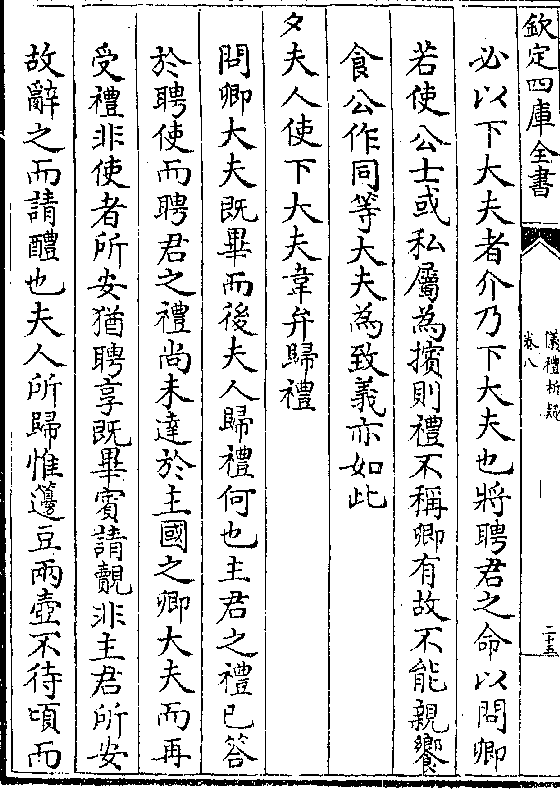 欽定四庫全書
儀禮析疑
卷八
二十五
必以下大夫者介乃下大夫也將聘君之命以問卿
若使公士或私屬為擯則禮不稱卿有故不能親饗
食公作同等大夫為致義亦如此
夕夫人使下大夫韋弁歸禮
問卿大夫既畢而後夫人歸禮何也主君之禮已答
於聘使而聘君之禮尚未達於主國之卿大夫而再
受禮非使者所安猶聘享既畢賓請覿非主君所安
故辭之而請醴也夫人所歸惟籩豆兩壺不待頃而